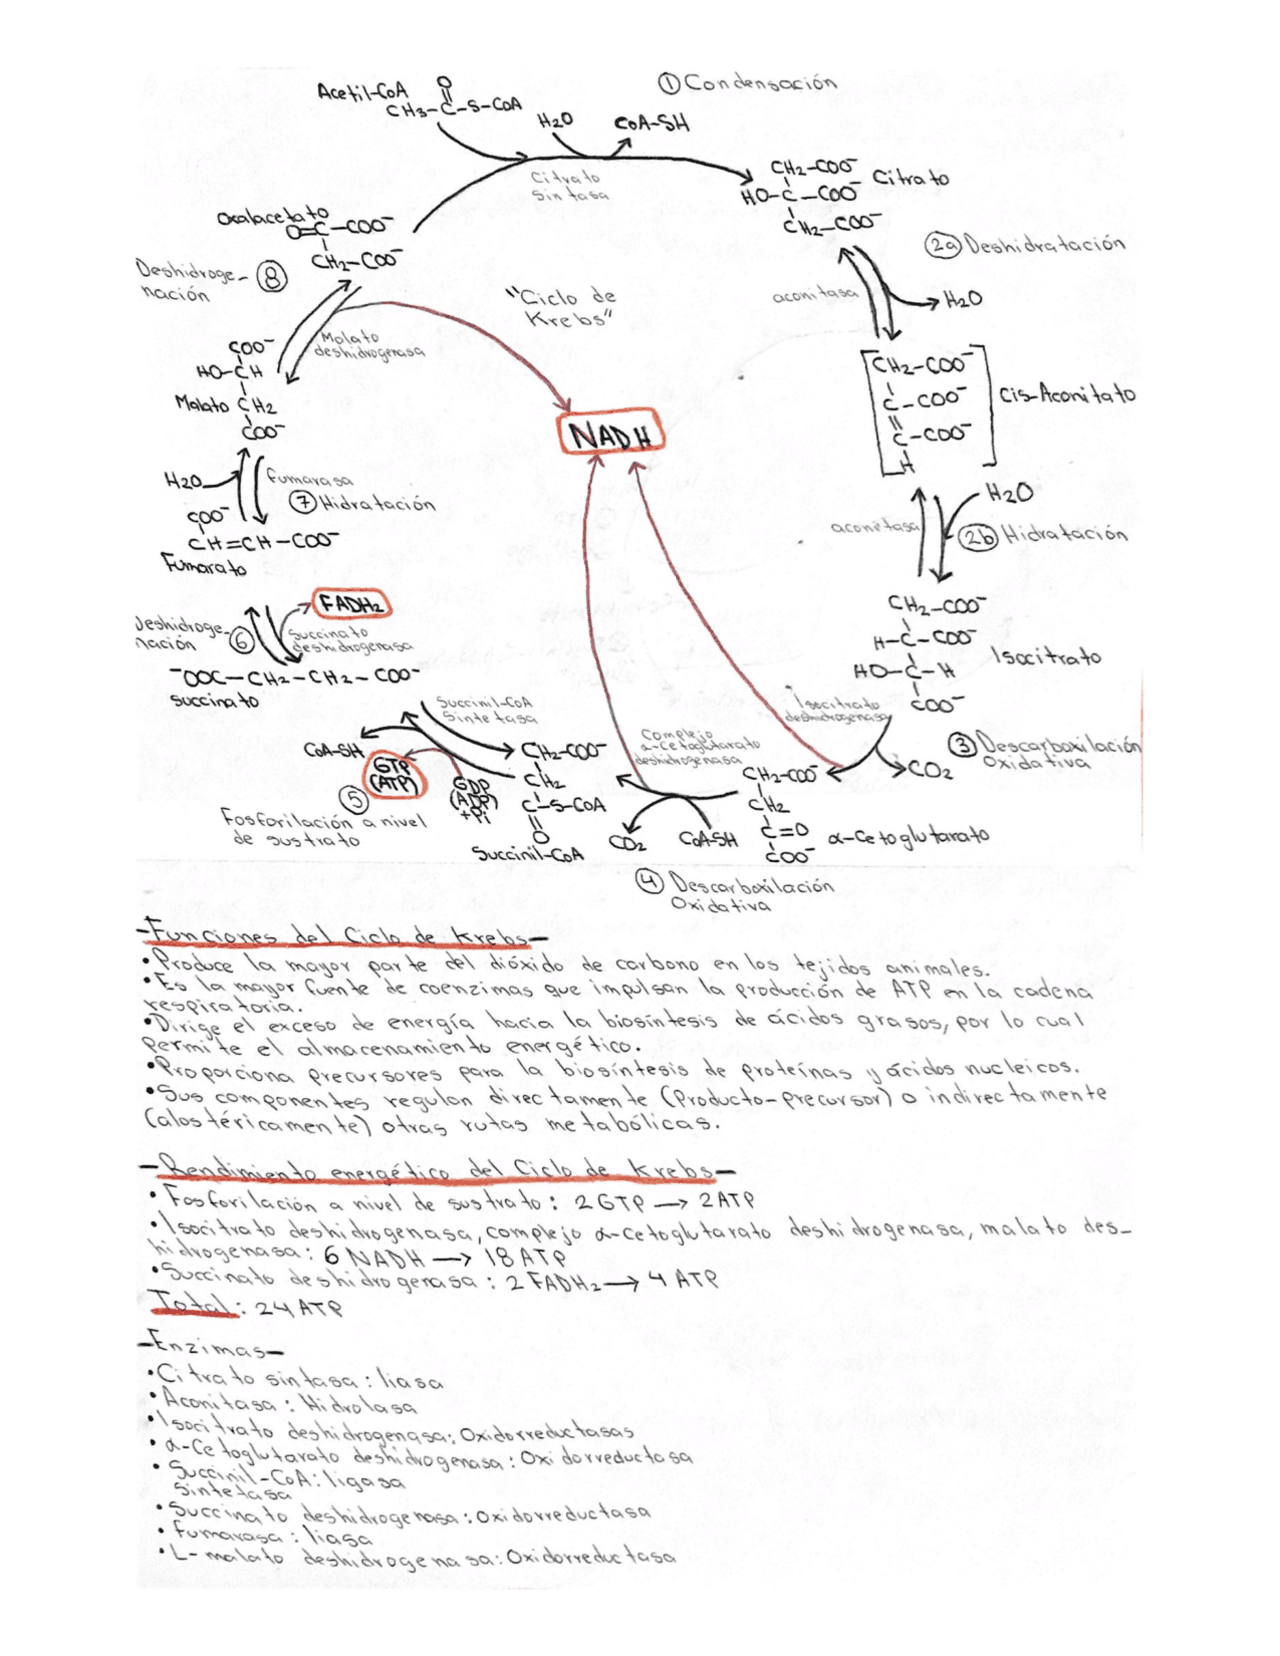 ① Condensación
Acetil-CoA
O
CH3-C-S-CoA
H2O
CoA-SH
Citrato
Sintasa
CH2-COO⁻
HO-C-COO⁻
CH2-COO⁻
Citrato
Oxalacetato
O=C-COO⁻
CH2-COO⁻
2a Deshidratación
aconitasa
H2O
Deshidroge-
nación
⑧
"Ciclo de
Krebs"
Malato
deshidrogenasa
COO⁻
HO-CH
Malato CH2
COO⁻
CH2-COO⁻
C-COO⁻
C-COO⁻
H
Cis-Aconitato
NADH
H2O
Fumarasa
⑦ Hidratación
aconitasa
H2O
2b Hidratación
COO⁻
CH=CH-COO⁻
Fumarato
FADH2
Deshidroge-
nación
⑥
Succinato
deshidrogenasa
CH2-COO⁻
H-C-COO⁻
HO-C-H
COO⁻
Isocitrato
⁻OOC-CH2-CH2-COO⁻
Succinato
Succinil-CoA
Sintetasa
Isocitrato
deshidrogenasa
③ Descarboxilación
Oxidativa
CO2
CoA-SH
GTP
(ATP)
GDP
(ADP)
+Pi
⑤
Fosforilación a nivel
de sustrato
CH2-COO⁻
CH2
C-S-CoA
O
Succinil-CoA
Complejo
α-Cetoglutarato
deshidrogenasa
CO2
CoA-SH
CH2-COO⁻
CH2
C=O
COO⁻
α-Cetoglutarato
④ Descarboxilación
Oxidativa
-Funciones del Ciclo de Krebs-
• Produce la mayor parte del dióxido de carbono en los tejidos animales.
• Es la mayor fuente de coenzimas que impulsan la producción de ATP en la cadena
respiratoria.
• Dirige el exceso de energía hacia la biosíntesis de ácidos grasos, por lo cual
permite el almacenamiento energético.
• Proporciona precursores para la biosíntesis de proteínas y ácidos nucleicos.
• Sus componentes regulan directamente (Producto-precursor) o indirectamente
(alostéricamente) otras rutas metabólicas.
-Rendimiento energético del Ciclo de Krebs-
• Fosforilación a nivel de sustrato: 2 GTP → 2 ATP
• Isocitrato deshidrogenasa, complejo α-Cetoglutarato deshidrogenasa, malato des-
hidrogenasa: 6 NADH → 18 ATP
• Succinato deshidrogenasa: 2 FADH2 → 4 ATP
Total: 24 ATP
-Enzimas-
• Citrato sintasa: liasa
• Aconitasa: Hidrolasa
• Isocitrato deshidrogenasa: Oxidorreductasas
• α-Cetoglutarato deshidrogenasa: Oxidorreductasa
• Succinil-CoA: ligasa
Sintetasa
• Succinato deshidrogenasa: Oxidorreductasa
• Fumarasa: liasa
• L-malato deshidrogenasa: Oxidorreductasa